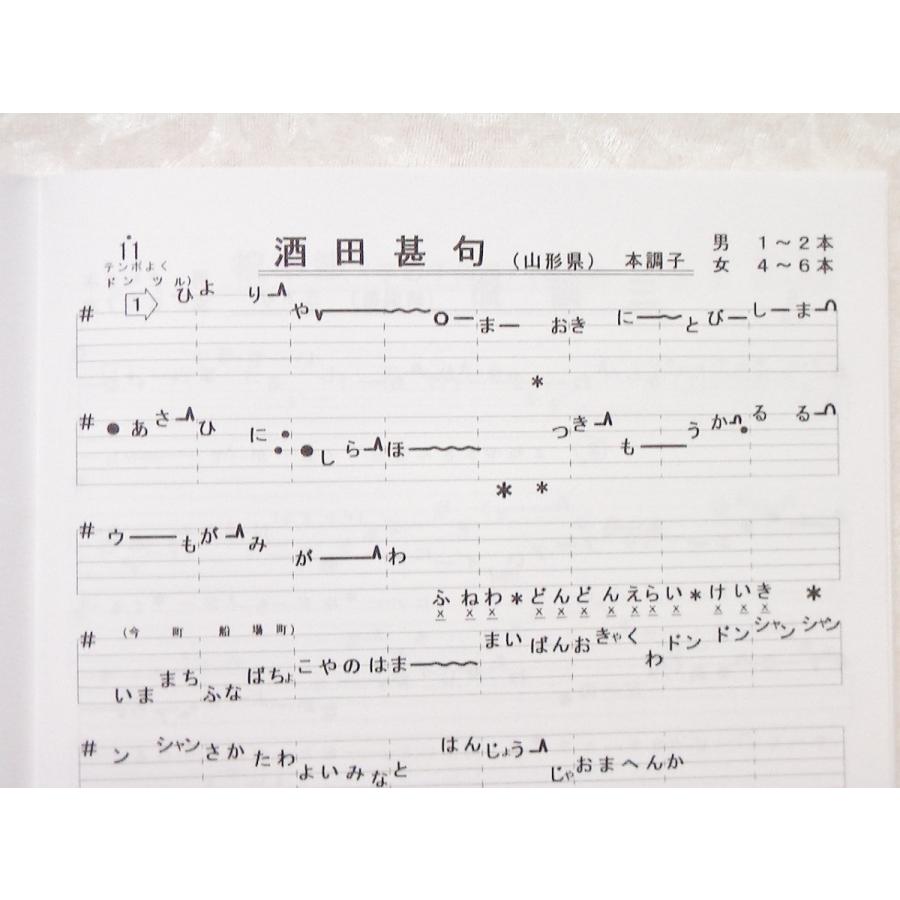 11 酒田甚句 (山形県) 本調子 男 1~2本
テンポよく 女 4~6本
ドン ツル)
1 ひより
# やーoーまー おき にーとびーしーまー
*
# ●あさーひ に:●しらーほー つきーもーうかるるー
* *
# ウーもがーみがーわ
ふねわ*どんどんえらい*けいき*
× × × × × × × × × × × × ×
# (今町船場町) まいばんおきゃくわドンドンシャンシャン
いままちふなばちょこやのはまー
# ンシャンさかたわよいみなと はんじょうーじゃおまへんか